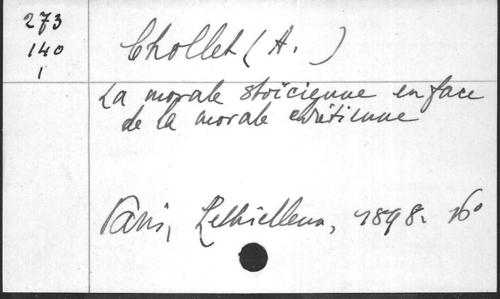 273
140
1
Chollet (A. )
La morale stoïcienne en face
de la morale chrétienne
Paris, Lethielleux, 1898. 16°